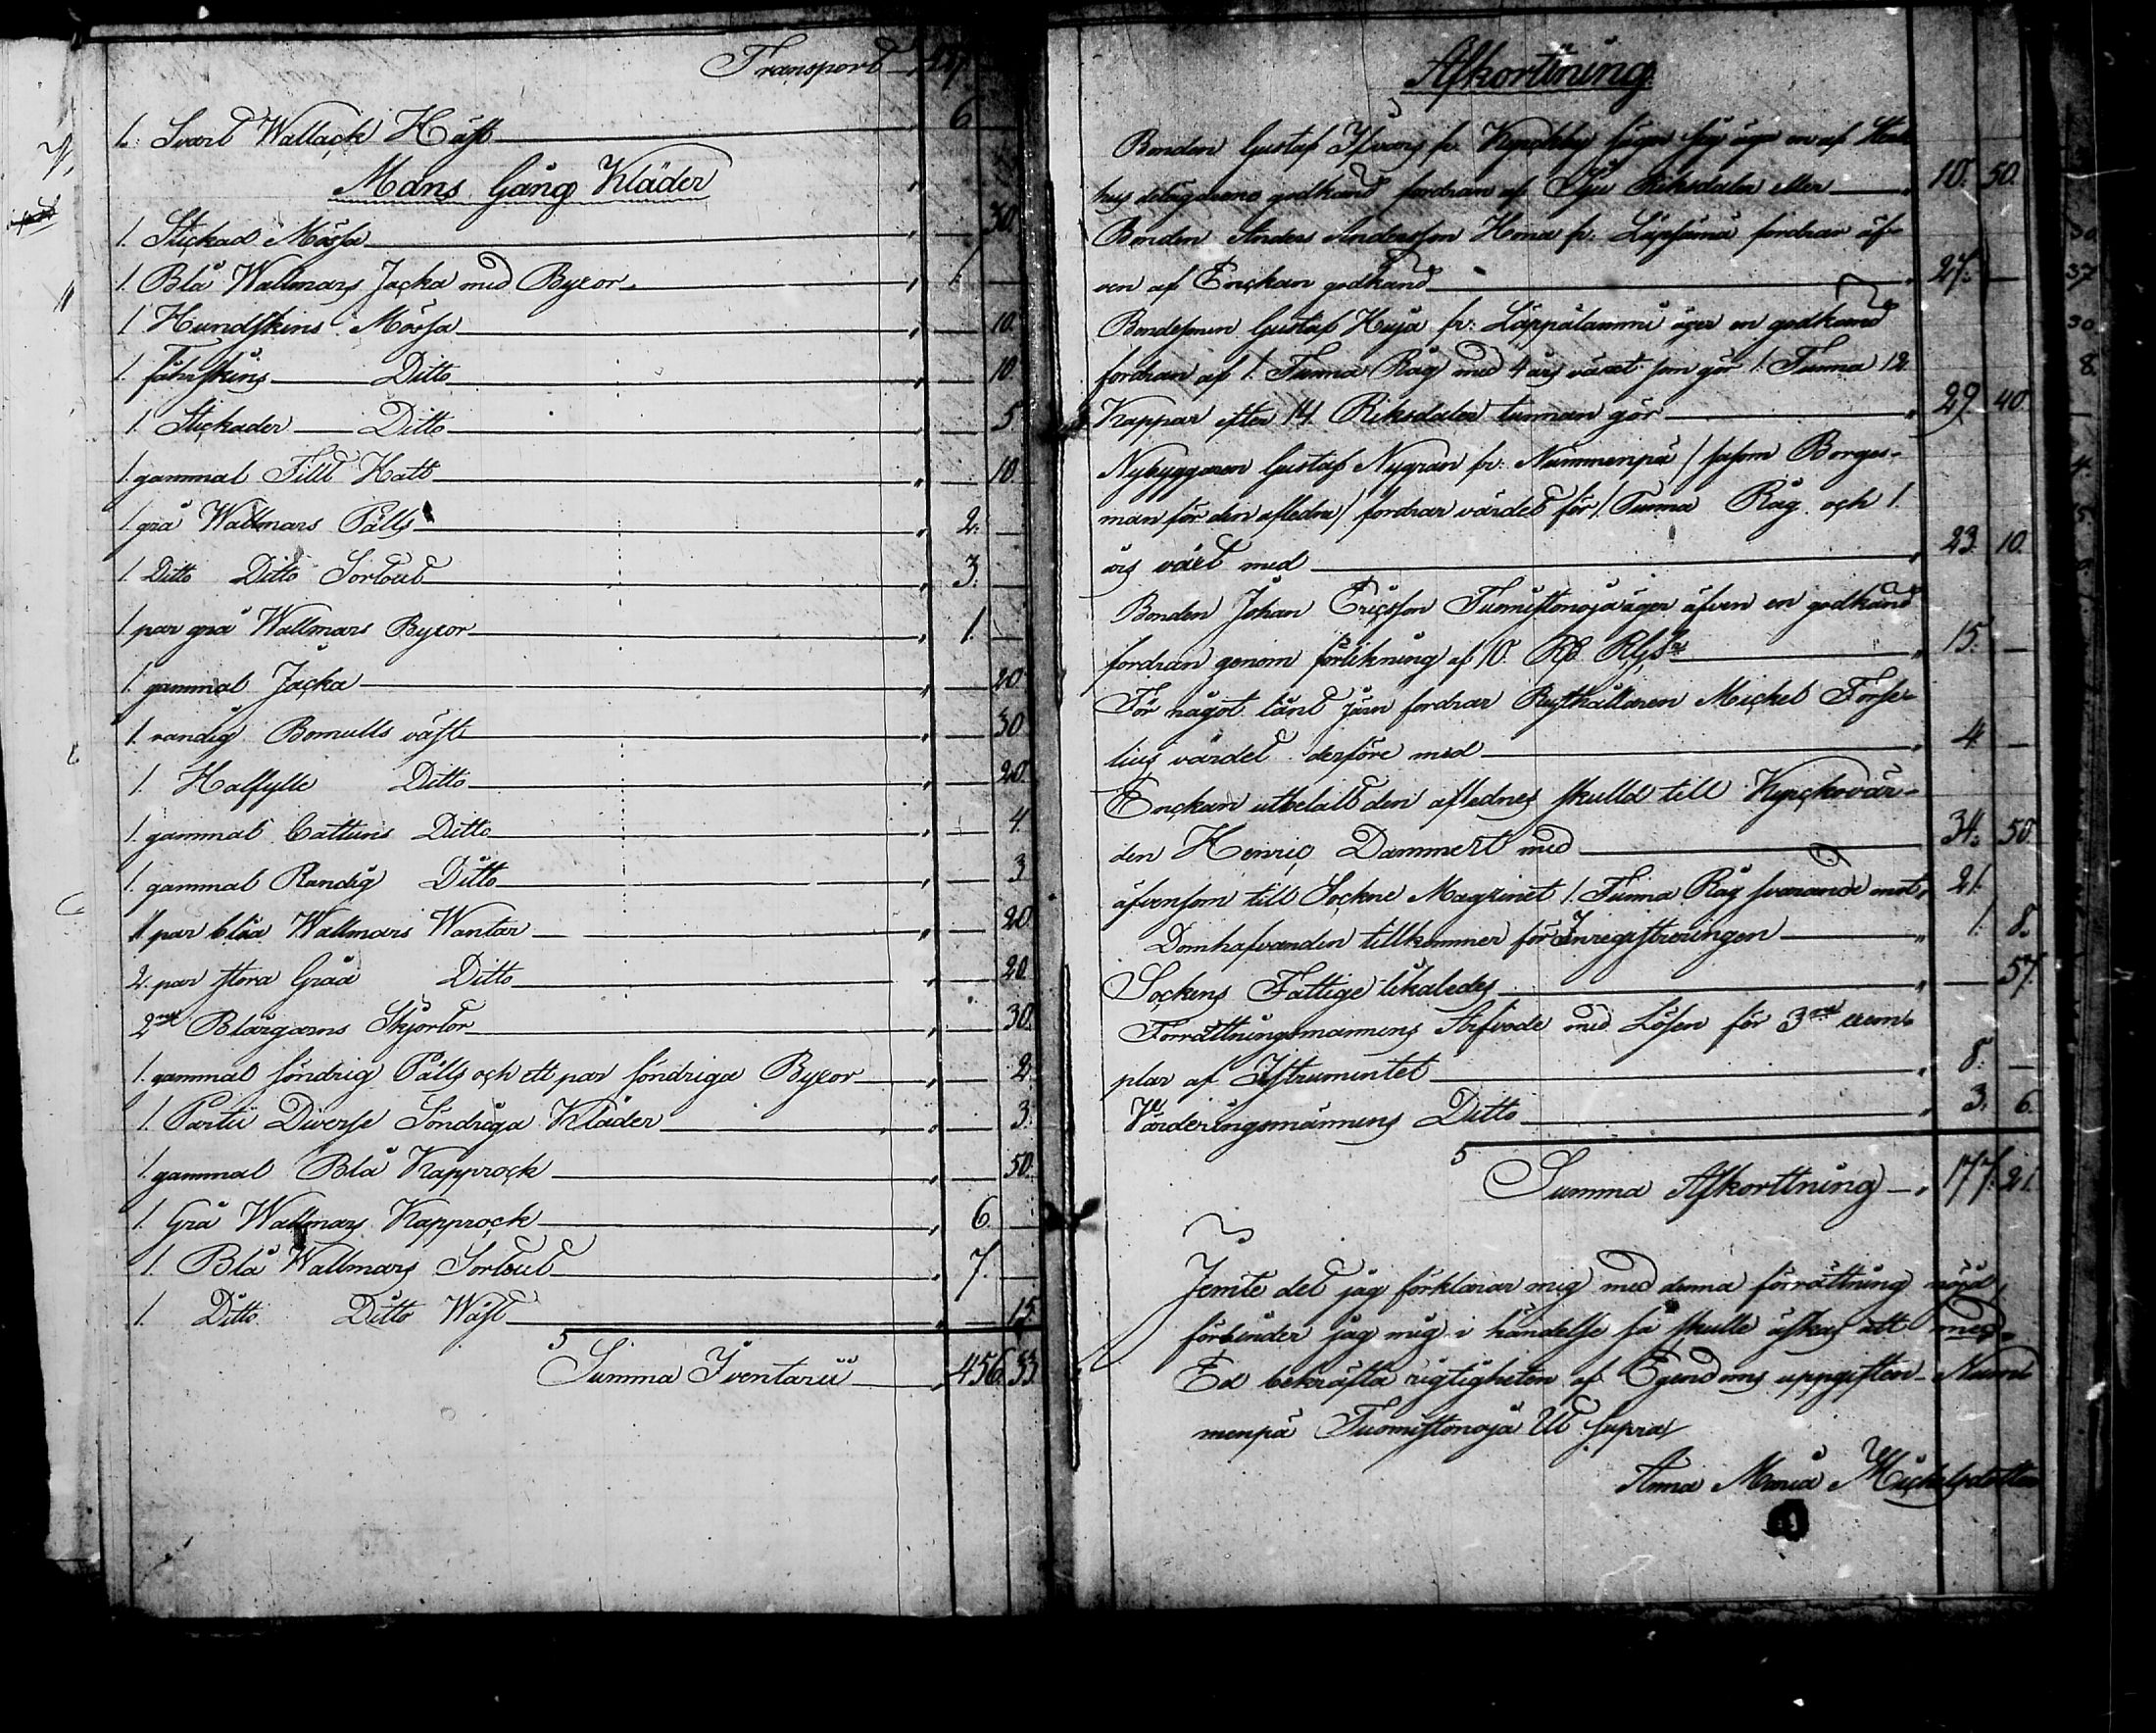 Transport
1. Svart Wallack Häst 6.
Mans Gång Kläder
1. Stickad Mössa 30
1. Blå Wallmars Jacka med Byxor 1.
1 Hundskins Mössa 10.
1. fåhrskins Ditto 10.
1 Stickader Ditto 5
1. gammal Fillt Hatt 10
1 grå Wallmars Pälls 2.
1. Ditto Ditto Sortout 3.
1. par grå Wallmars Byxor 1.
1. gammal Jacka 20
1. randig Bomulls väst 30
1. Halfylle Ditto 20.
1. gammal Cattuns Ditto 4.
1. gammal Randig Ditto 3
1. par blåa Wallmars Wantar 20
2. par stora Gråa Ditto 20.
2ne Blårgarns Skjortor 30.
1. gammal söndrig Pälls och ett par söndriga Byxor 2.
1. Partii Diverse Söndriga Kläder 3.
1. gammal Blå Kapprock 50.
1. Grå Wallmars Kapprock 6.
1. Blå Wallmars Sortout 7.
1. Ditto Ditto Wäst 15.
Summa Iventarii 456. 33.
Afkortning
Bonden Gustaf fr. Kyrckby säges sig äga en af
hus delägarena godkänd fordran af Sju Riksdaler eller 10. 50.
Bonden Anders Andersson Hona fr. fordrar äf-
ven af Enckan godkänd 27.
Bondesonen Gustaf Huja fr: Lappälammi äger en godkänd
fordran af 1. Tunna Råg med 4 års växt som gör 1. Tunna 12
Kappar efter 14. Riksdaler tunnan gör 29 40.
Nybyggaren Gustaf Nygran fr: Nummenpä / såsom Borges-
man för den aflednе / fordrar värdet för 1. Tunna Råg och 1.
års växt med 23. 10.
Bonden Johan Ericsson Tuomistonoja äger äfven en godkänd
fordran genom förlikning af 10. Rd Rgs 15.
För något lånt järn fordrar Rusthållaren Mickel Forse-
lius värdet derföre med 4
Enckan utbetalt den aflednes skulld till Kyrckovär-
den Henric Dammert med 34. 50
äfvensom till Sockne Magzinet 1. Tunna Råg svarande mot 21.
Domhafvanden tillkommer för Inregistreringen 1. 8.
Sockens Fattige likaledes 57.
Förrättningsmannens Arfvode med Lösen för 3ne exem-
plar af Istrumentet 8.
Värderingsmännens Ditto 3. 6.
Summa Afkorttning 177. 21.
Jemte det jag förklarar mig med denna förrättning nöjd,
förbinder jag mig i händelse så skulle äskas att med
Ed bekräfta rigtigheten af Egendoms uppgiften. Num-
menpä Tuomistonoja Ut supra
Anna Maria Mickelsdotter